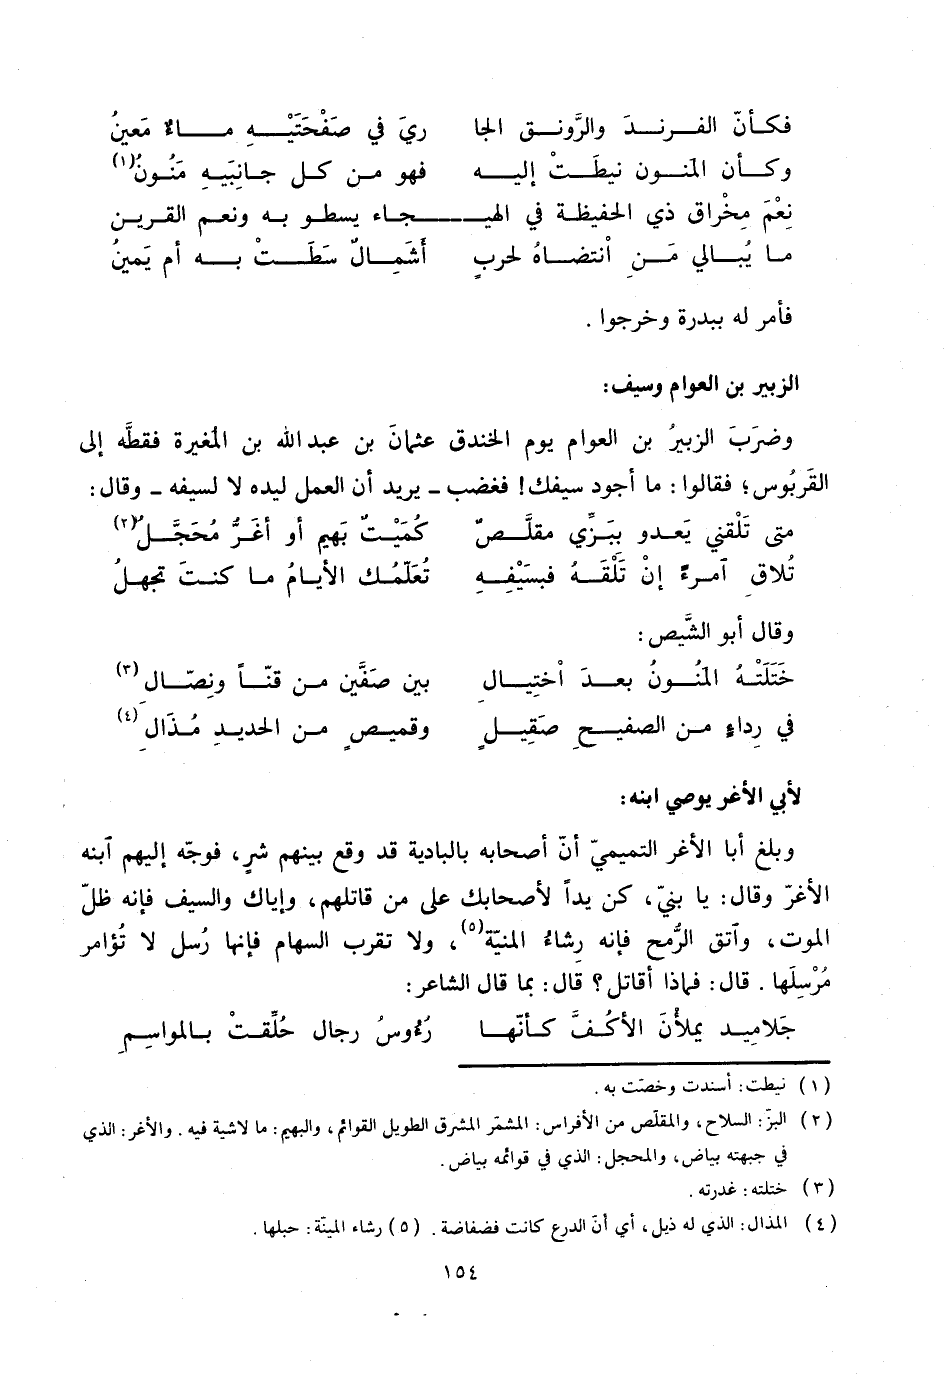 فكأنّ الفرندَ والرَّونق الجا ريَ في صَفْحَتَيْهِ ماءٌ مَعينُ
وكأن المنون نيطَتْ إليه فهو من كل جانِبَيهِ مَنُونُ(١)
نِعْمَ مِخْراق ذي الحفيظة في الهيجاء يسطو به ونعم القرين
ما يُبالي مَنِ أنتضاهُ لحربٍ أشَمِالٌ سَطَتْ به أم يَمينُ
فأمر له ببدرة وخرجوا .
الزبير بن العوام وسيف:
وضرَبَ الزبيرُ بن العوام يوم الخندق عثمانَ بن عبدالله بن المغيرة فقطَّه إلى
القَربُوس؛ فقالوا: ما أجود سيفك! فغضب ـ يريد أن العمل ليده لا لسيفه ـ وقال:
متى تَلْقني يَعدو ببَزِّي مقلَّصٌ كُمَيْتٌ بَهيم أو أغَرُّ مُحَجَّلُ(٢)
تُلاقِ آمرءً إنْ تَلْقَهُ فبسَيْفِهِ تُعَلّمُك الأيامُ ما كنتَ تجهلُ
وقال أبو الشَّيص:
خَتَلَتْهُ المَنُونُ بعدَ اختِيالِ بين صَفَّين من قنّاً ونِصّالِ(٣)
في رِداءٍ من الصفيحِ صَقِيلٍ وقميصٍ من الحديدِ مُذَالِ(٤)
لأبي الأغر يوصي ابنه:
وبلغ أبا الأغر التميميّ أنّ أصحابه بالبادية قد وقع بينهم شرٍ، فوجّه إليهم آبنه
الأغرّ وقال: يا بنيّ، كن يداً لأصحابك على من قاتلهم، وإياك والسيف فإنه ظلّ
الموت، وآتق الرُّمح فإنه رِشاءُ المنيّة(٥)، ولا تقرب السهام فإنها رُسل لا تُؤامر
مُرْسِلَها . قال: فماذا أقاتل؟ قال: بما قال الشاعر:
جَلاميد يملأْنَ الأكُفَّ كأنّها رُءوسُ رجال حُلِّقتْ بالمواسِمِ
(١) نيطت: أسندت وخصّت به .
(٢) البزّ: السلاح، والمقلّص من الأفراس: المشمّر المشرق الطويل القوائم، والبهيم: ما لاشية فيه . والأغر: الذي
في جبهته بياض، والمحجل: الذي في قوائمه بياض .
(٣) ختلته: غدرته .
(٤) المذال: الذي له ذيل، أي أنّ الدرع كانت فضفاضة . (٥) رشاء الميتّة: حبلها .
١٥٤